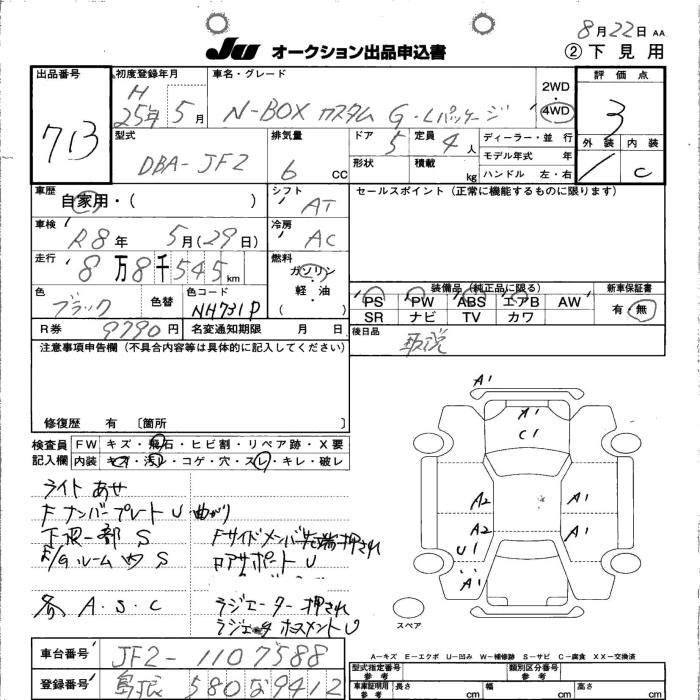 8月22日 AA
JU オークション出品申込書 ② 下見用
出品番号 713
初度登録年月 H 25年 5月
車名・グレード N-BOX カスタム G・Lパッケージ
2WD・4WD
評価点 3
外装 内装 C
型式 DBA-JF2
排気量 6 CC
ドア 5 定員 4人
形状 積載 kg
ディーラー・並行
モデル年式 年
ハンドル 左・右
車歴 自家用・( )
シフト AT
セールスポイント(正常に機能するものに限ります)
車検 R8年 5月(29日)
冷房 AC
走行 8万8千545km
燃料 ガソリン・軽・油 ( )
色 ブラック 色替
色コード NH731P
装備品(純正品に限る) 新車保証書
PS PW ABS エアB AW 有・無
SR ナビ TV カワ
R券 9790円 名変通知期限 月 日
後日品 取説
注意事項申告欄(不具合内容等は具体的に記入してください)
修復歴 有 〔箇所 〕
検査員記入欄
FW キズ・飛石・ヒビ割・リペア跡・X要
内装 キズ・汚レ・コゲ・穴・スレ・キレ・破レ
ライト あせ
Fナンバープレート U 曲がり
下廻一部 S
Fサイドメンバ先端押され
E/Gルーム内 S
ロアサポート U
各 A.S.C
ラジエーター 押され
A1
A1
C1
A2 A1
A2 A1
U1
A1
スペア
A-キズ E-エクボ U-凹み W-補修跡 S-サビ C-腐食 XX-交換済
車台番号 JF2-1107588
登録番号 島根 580 な 9412
型式指定番号 参考
類別区分番号 参考
車庫証明用 参考 長さ cm 幅 cm 高さ cm